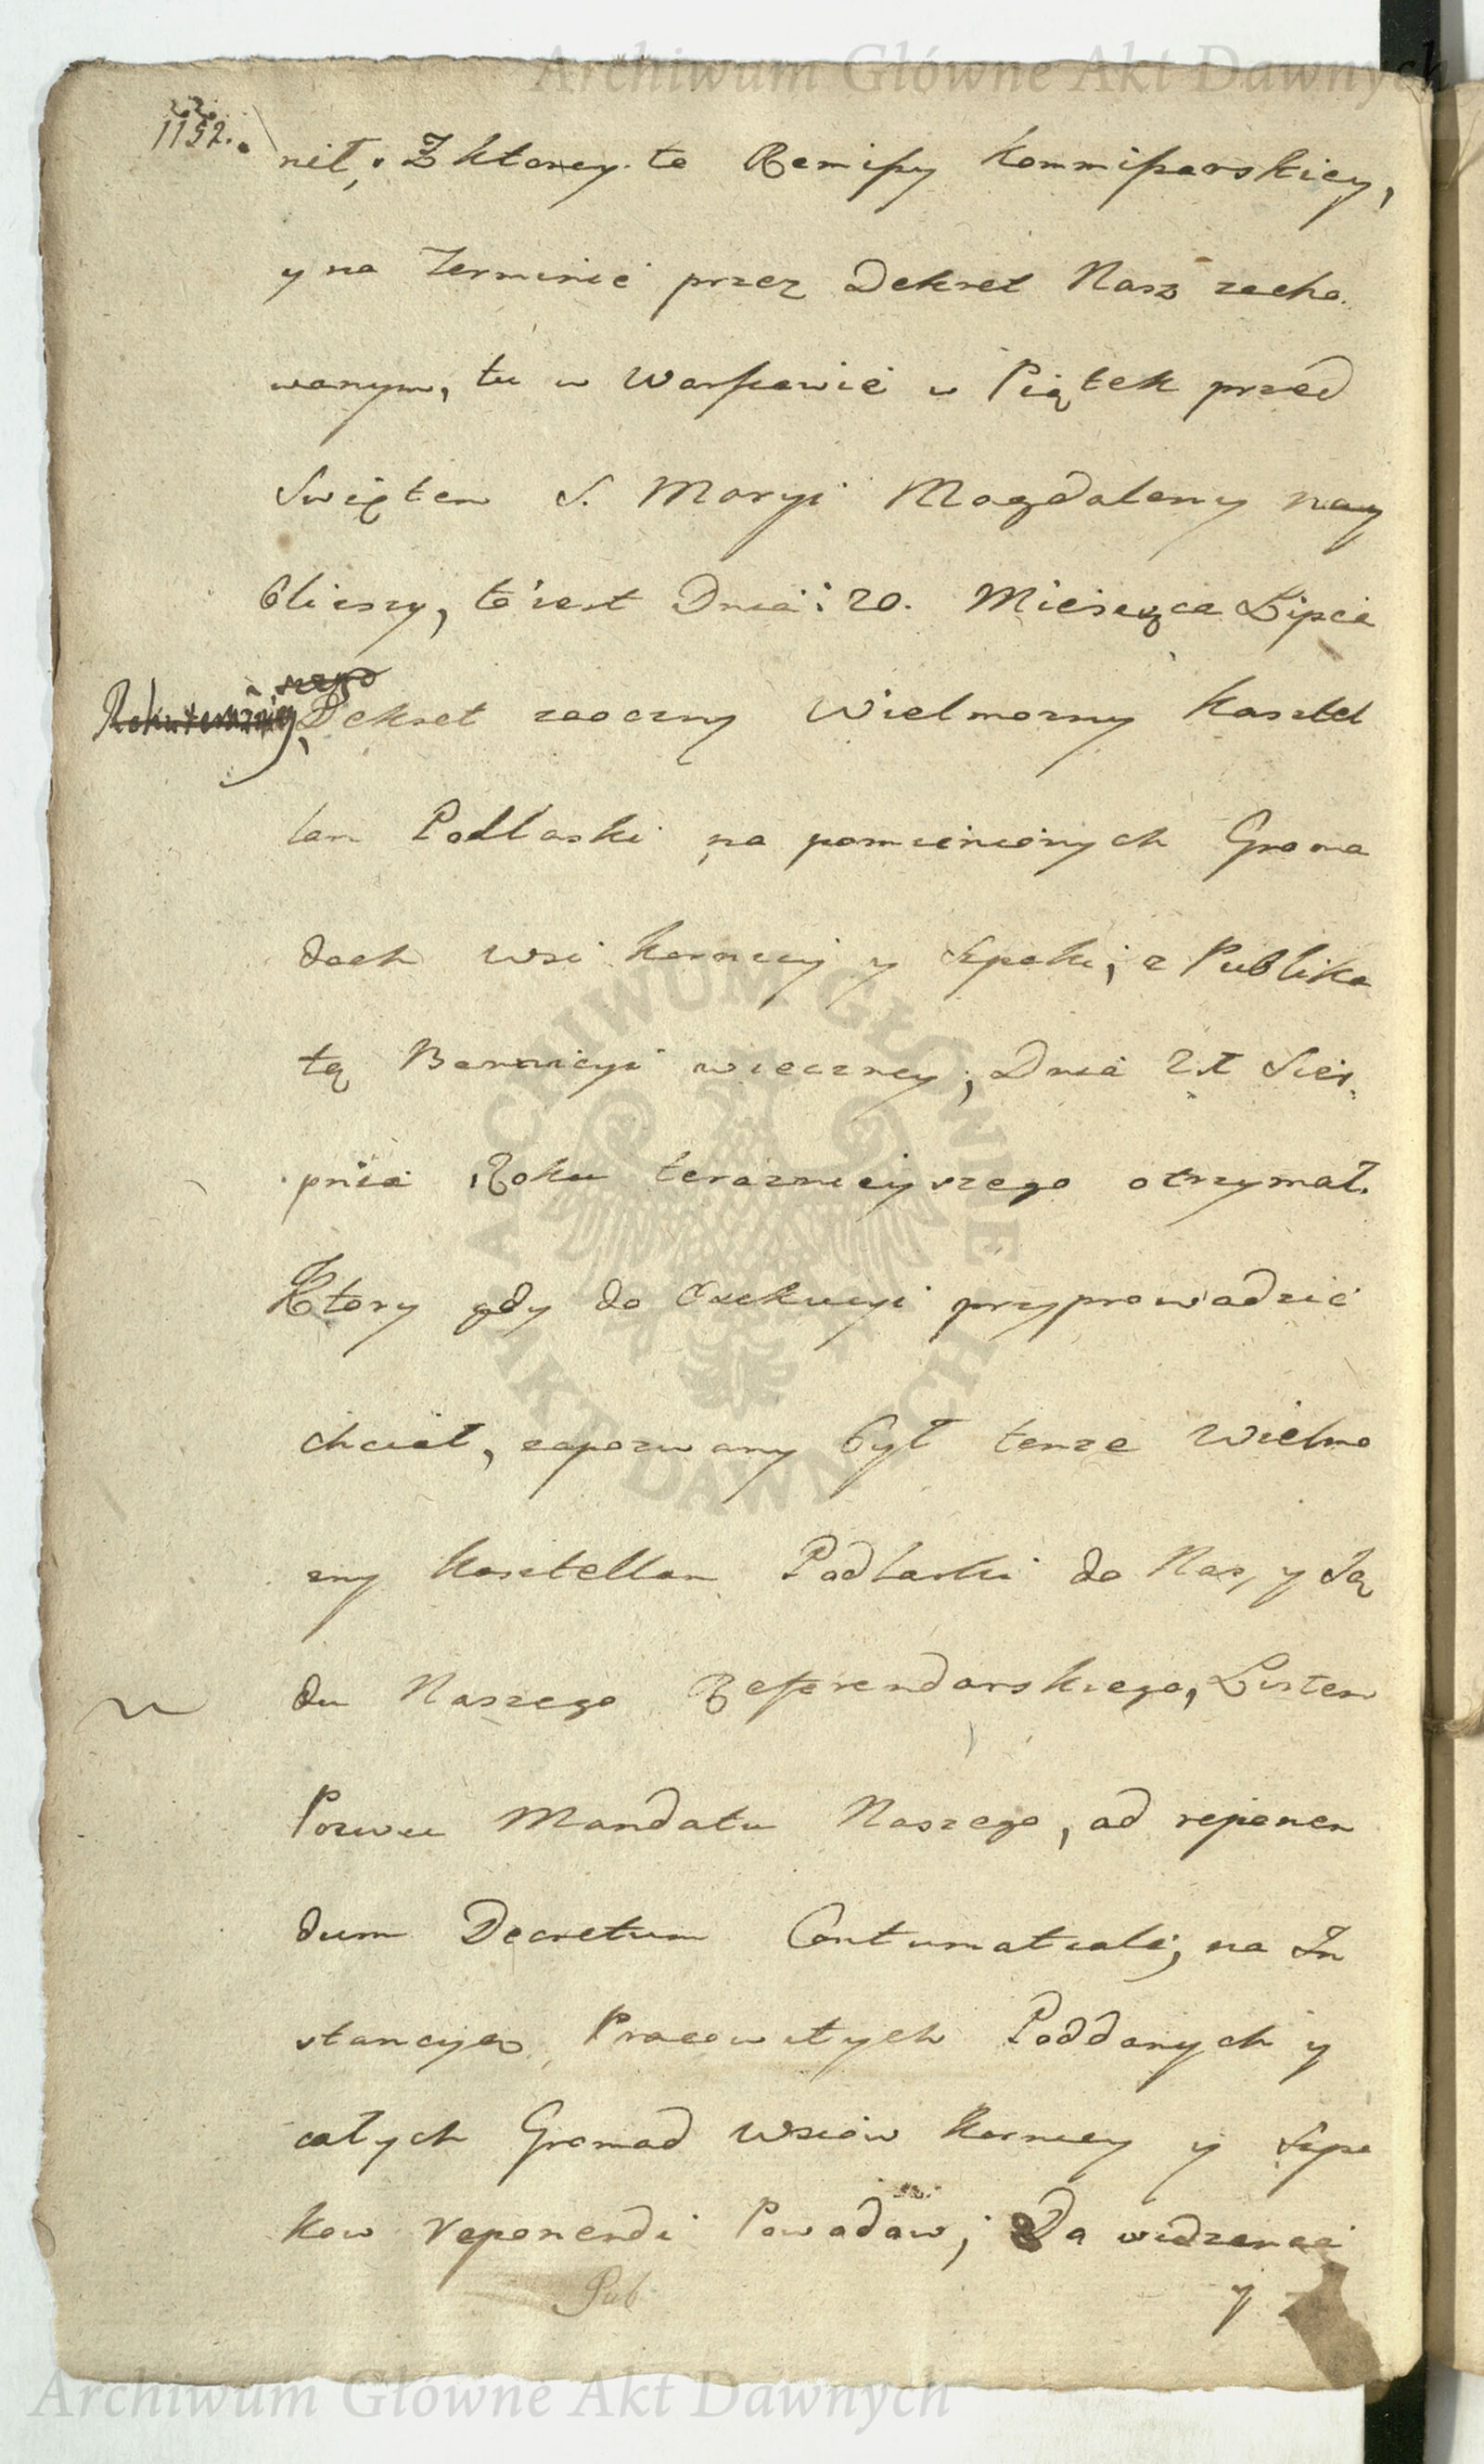 Archiwum Główne Akt Dawnych
1152.
nił, Z ktorey to Remissy Kommissarskiey,
y na Terminie przez Dekret Nasz zacho
wanym, tu w Warszawie w Piątek przed
Swiętem S. Maryi Magdaleny nay
bliższy, to iest Dnia: 20. Miesiąca Lipca
Dekret zaoczny Wielmozny Kasztel
lan Podlaski na pomienionych Groma
dach wsi Kornicy y Szpaki, z Publika
tą Bannicyi wieczney, Dnia 21 Sier
pnia Roku teraznieyszego otrzymał.
Ktory gdy do Exekucyi przyprowadzić
chciał, zapozwany był tenze Wielmo
zny Kasztellan Podlaski do Nas, y Są
du Naszego Referendarskiego, Listem
Pozwu Mandatu Naszego, ad reponen
dum Decretum Contumatiale, na In
stancyą Pracowitych Poddanych y
całych Gromad Wsiów Kornicy y Szpa
kow reponendi Powodow; Do widzenia
y
Pub
ARCHIWUM GŁÓWNE AKT DAWNYCH
Archiwum Główne Akt Dawnych